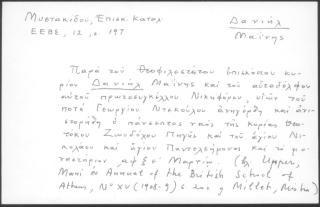 Μυστακίδου, Επισκ. Κατάλ
ΕΕΒΣ, 12, σ. 197
Δανιήλ
Μαΐνης
Παρά του Θεοφιλεστάτου επισκόπου κυ-
ρίου Δανιήλ Μαΐνης και του αυταδέλφου
αυτού πρωτοσυγκέλλου Νικηφόρου, υιών του
ποτέ Γεωργίου ανηγέρθη και ανι-
στορήθη ο πάνσεπτος ναός της κυρίας Θεο-
τόκου Ζωοδόχου Πηγής και του αγίου Νι-
κολάου και αγίου Παντελεήμονος και το μο-
ναστήριον Μαρτίω. (βλ
Mani in Annual of the British School of
Athens, Nº XV (1908-9) σ Millet,